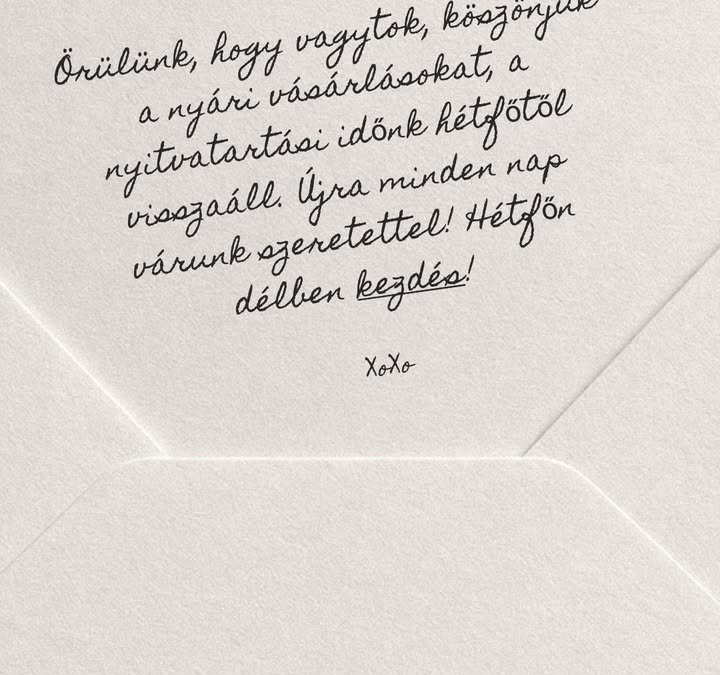 Örülünk, hogy vagytok, köszönjük
a nyári vásárlásokat, a
nyitvatartási időnk hétfőtől
visszaáll. Újra minden nap
várunk szeretettel! Hétfőn
délben kezdés!
XoXo